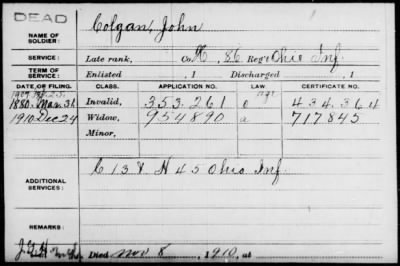 DEAD
NAME OF SOLDIER: Colgan, John
SERVICE: Late rank, Co. K, 86 Reg't Ohio Inf.
TERM OF SERVICE: Enlisted , 1 Discharged , 1
DATE OF FILING. CLASS. APPLICATION NO. LAW CERTIFICATE NO.
1880. Mar. 31 Invalid, 353.261 434.364
1910 Dec 24 Widow, 954890 a 717845
Minor,
ADDITIONAL SERVICES: C 13 & H 45 Ohio Inf
REMARKS:
Died Nov 8, 1910, at